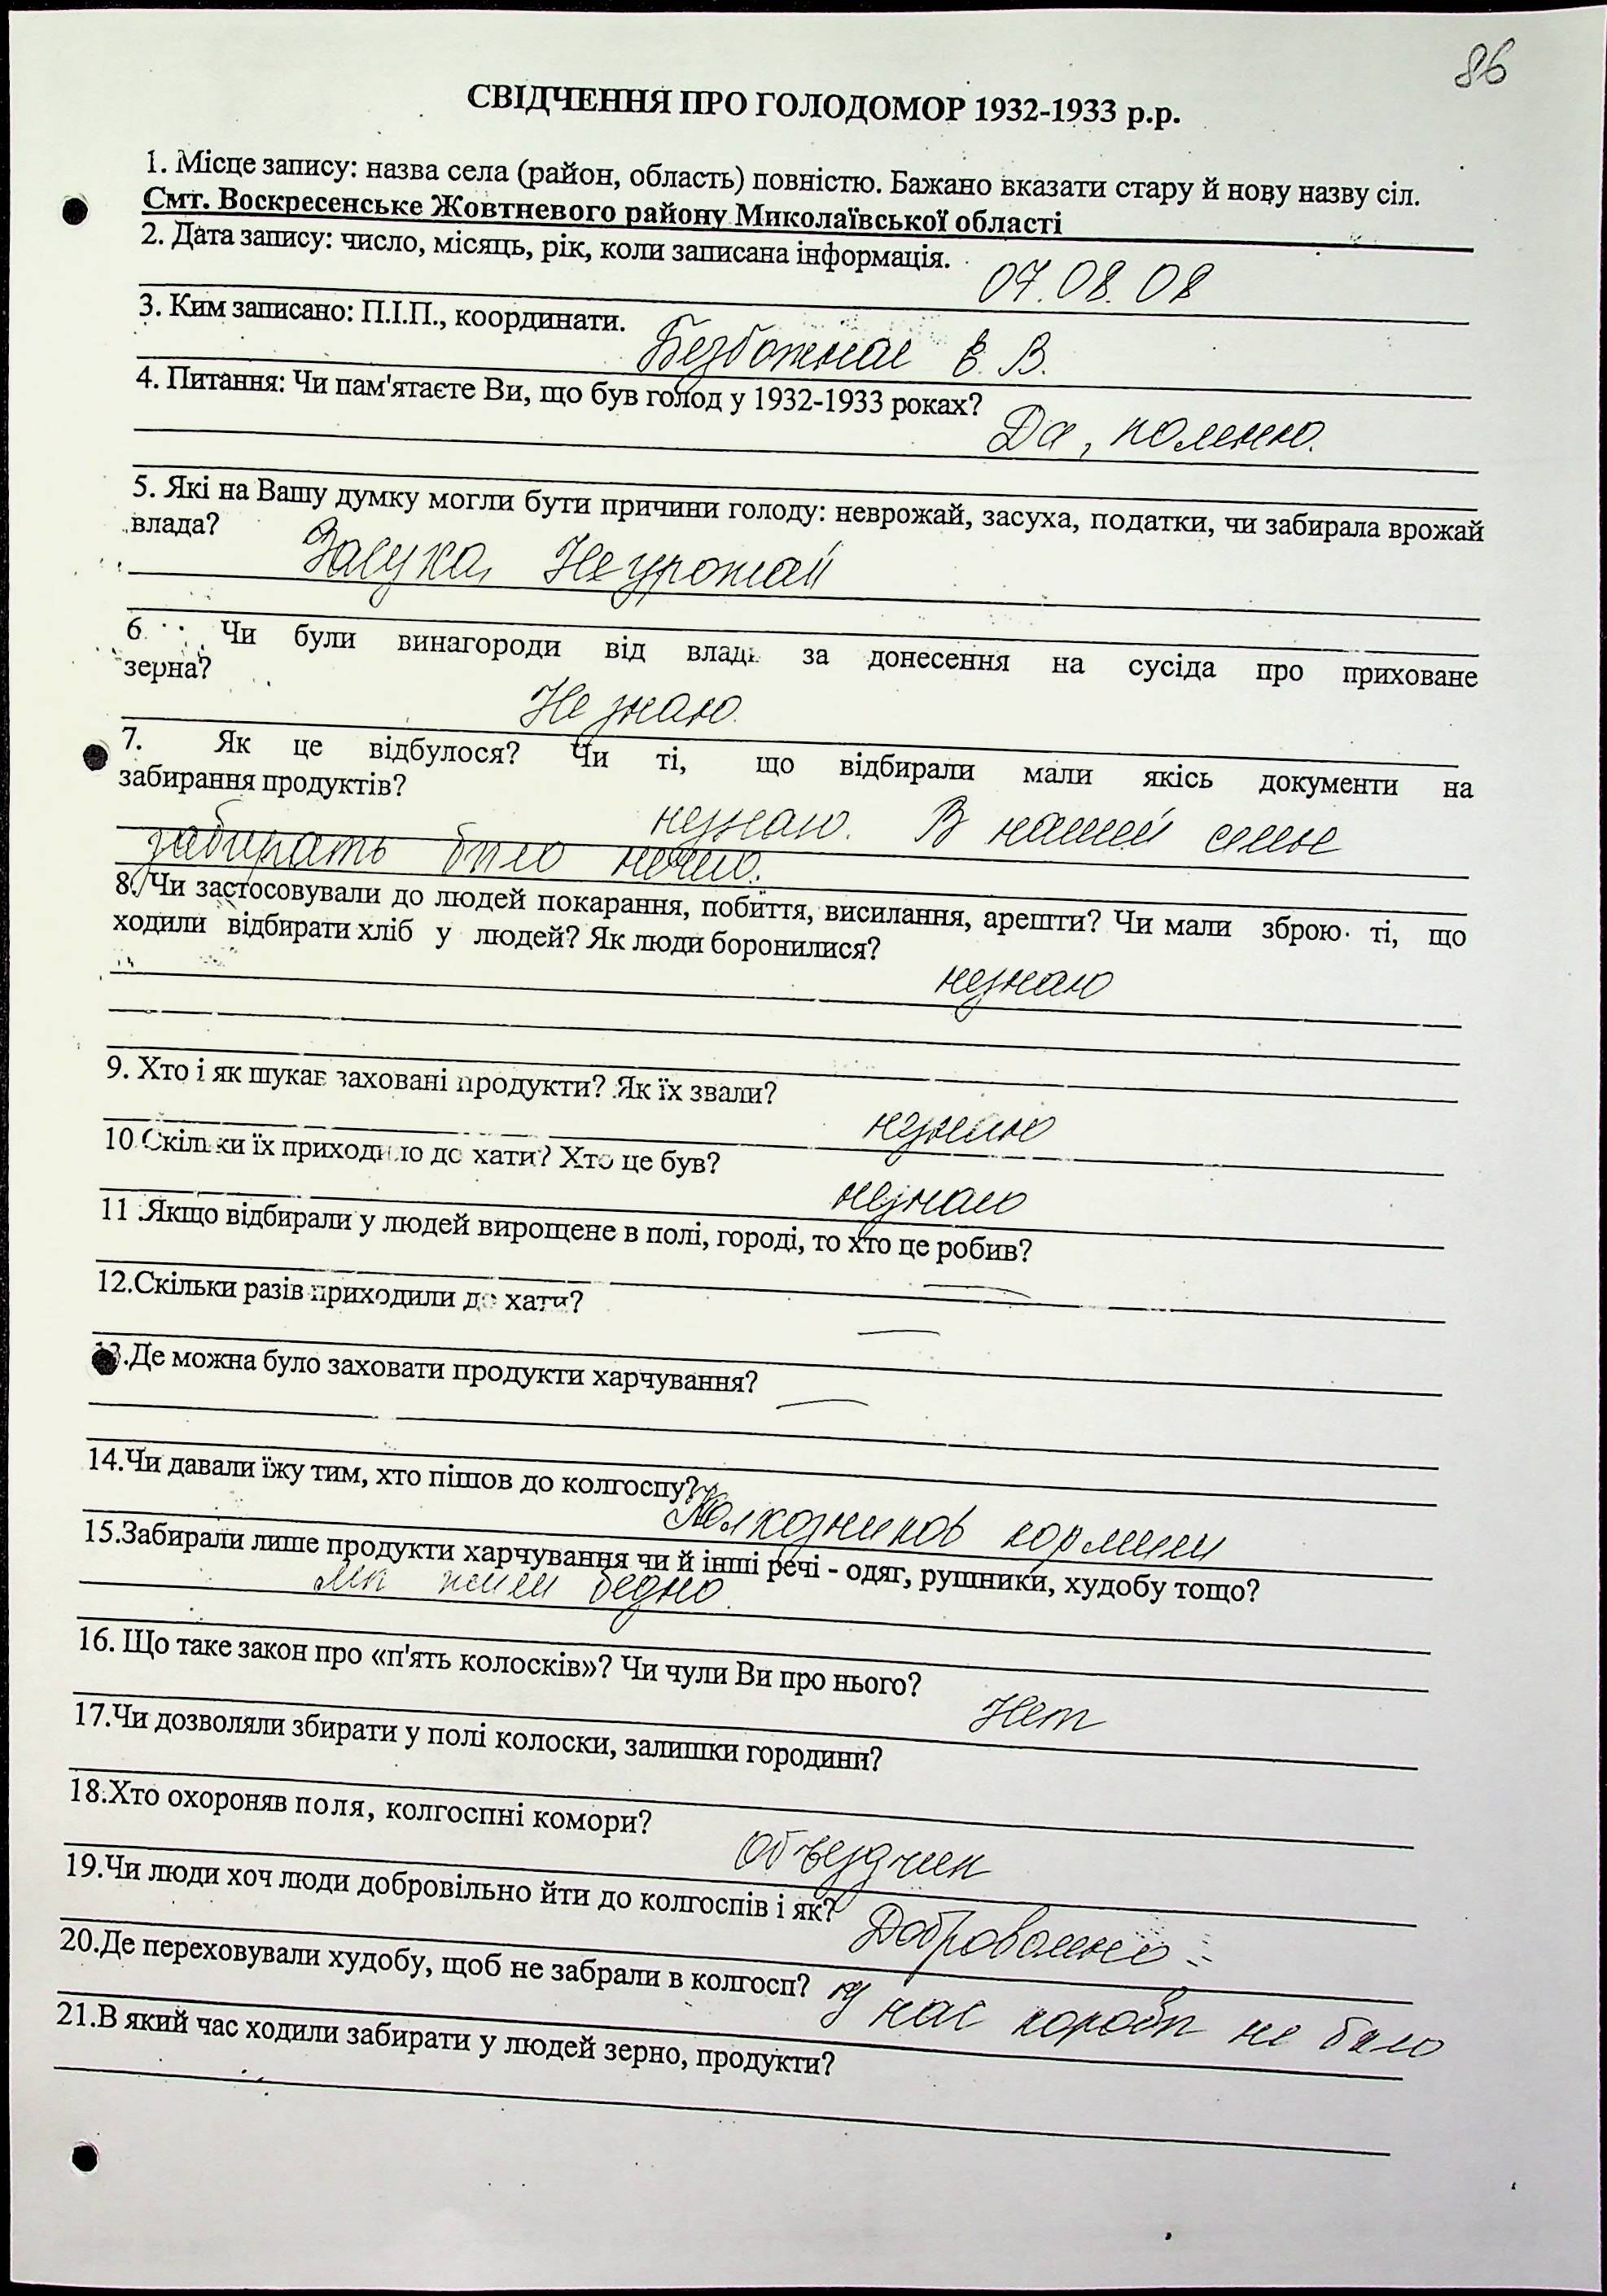 86
СВІДЧЕННЯ ПРО ГОЛОДОМОР 1932-1933 р.р.
1. Місце запису: назва села (район, область) повністю. Бажано вказати стару й нову назву сіл.
Смт. Воскресенське Жовтневого району Миколаївської області
2. Дата запису: число, місяць, рік, коли записана інформація.
07.08.08
3. Ким записано: П.І.П., координати.
Безбожная Е. В.
4. Питання: Чи пам'ятаєте Ви, що був голод у 1932-1933 роках?
Да, помню.
5. Які на Вашу думку могли бути причини голоду: неврожай, засуха, податки, чи забирала врожай
влада?
Засуха, Неурожай
6. Чи були винагороди від влади за донесення на сусіда про приховане
зерна?
Не знаю.
7. Як це відбулося? Чи ті, що відбирали мали якісь документи на
забирання продуктів?
незнаю. В нашей семье
забирать было нечего.
8. Чи застосовували до людей покарання, побиття, висилання, арешти? Чи мали зброю ті, що
ходили відбирати хліб у людей? Як люди боронилися?
незнаю
9. Хто і як шукав заховані продукти? Як їх звали?
незнаю
10.Скільки їх приходило до хати? Хто це був?
незнаю
11 .Якщо відбирали у людей вирощене в полі, городі, то хто це робив?
—
12.Скільки разів приходили до хати?
—
13.Де можна було заховати продукти харчування?
—
14.Чи давали їжу тим, хто пішов до колгоспу?
Колхозников кормили
15.Забирали лише продукти харчування чи й інші речі - одяг, рушники, худобу тощо?
Мы жили бедно.
16. Що таке закон про «п'ять колосків»? Чи чули Ви про нього?
Нет
17.Чи дозволяли збирати у полі колоски, залишки городини?
18.Хто охороняв поля, колгоспні комори?
Объездчик
19.Чи люди хоч люди добровільно йти до колгоспів і як?
Добровольно
20.Де переховували худобу, щоб не забрали в колгосп?
У нас коровы не было
21.В який час ходили забирати у людей зерно, продукти?